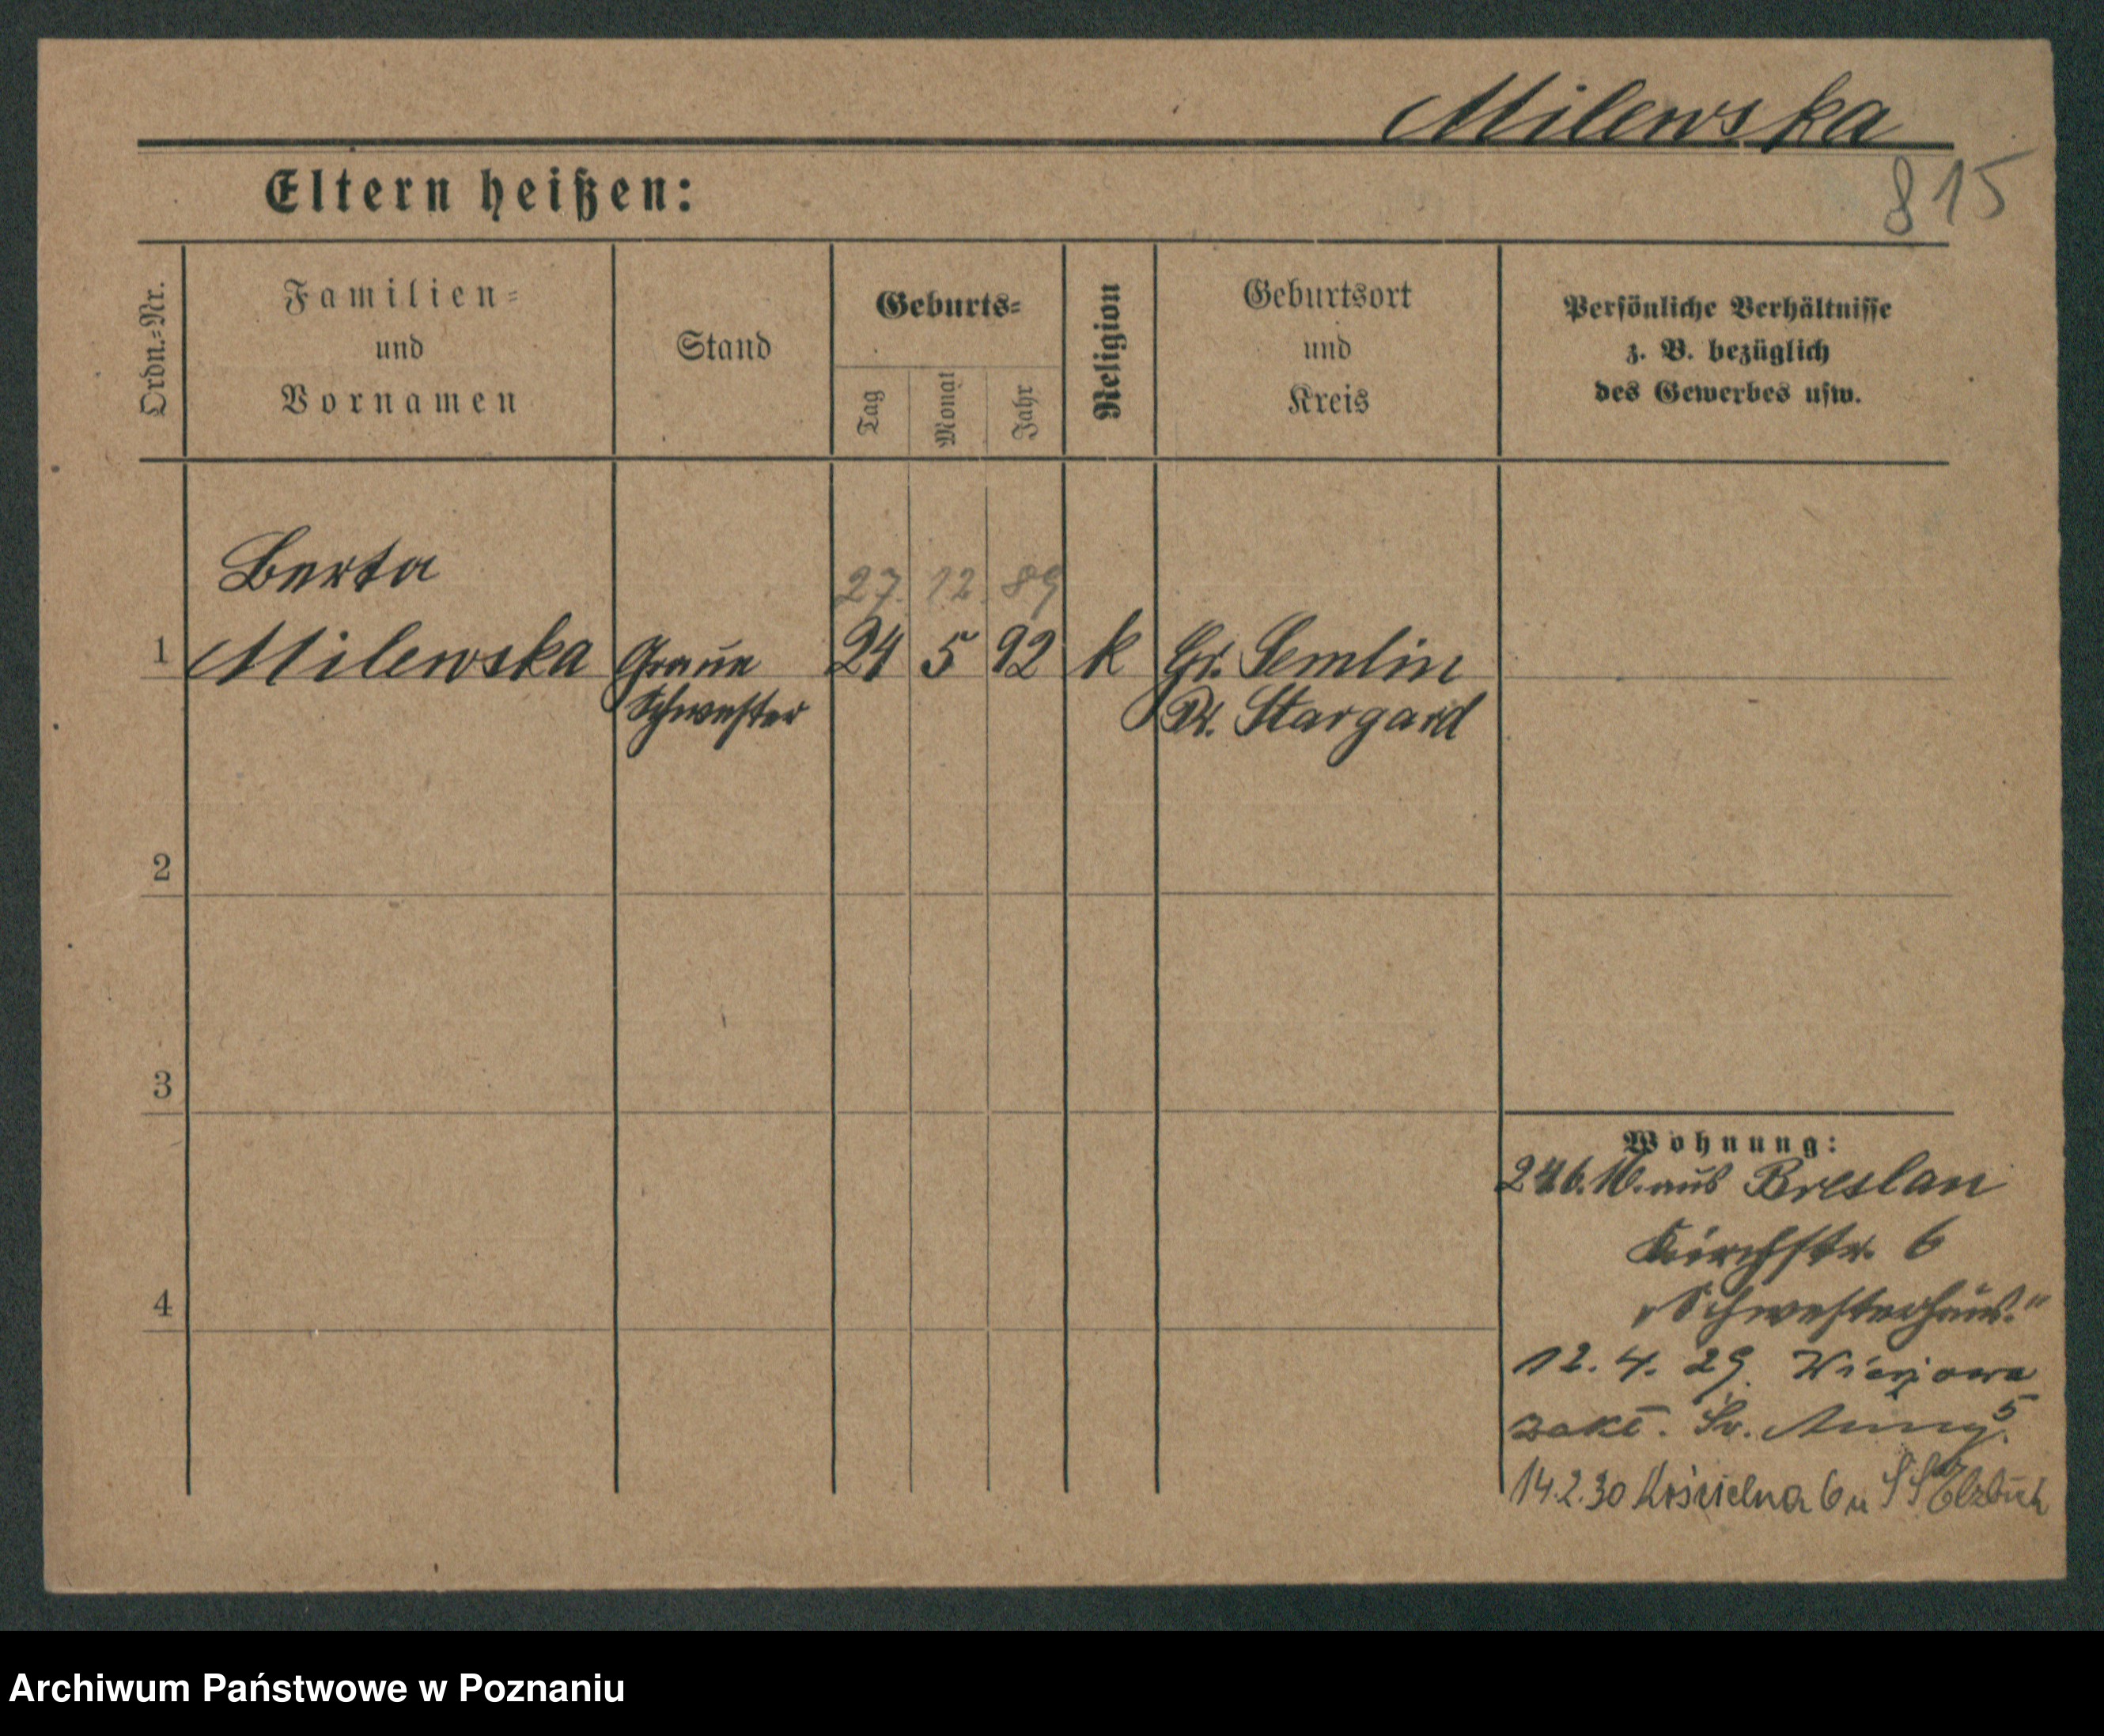 Milewska
815
Eltern heißen:
Ordn.-Nr.
Familien-
und
Vornamen
Stand
Geburts-
Tag
Monat
Jahr
Religion
Geburtsort
und
Kreis
Persönliche Verhältnisse
z. B. bezüglich
des Gewerbes usw.
Berta
27. 12. 89
1 Milewska Graue 24 5 92 k Gr. Semlin
Schwester Pr. Stargard
2
3
4
Wohnung:
aus Breslau
Kirchstr. 6
„Schwesterhaus."
12. 4. 29.
zakł. Św. Anny 5
14.2.30 Kościelna 6 u S S Elżbiet
Archiwum Państwowe w Poznaniu